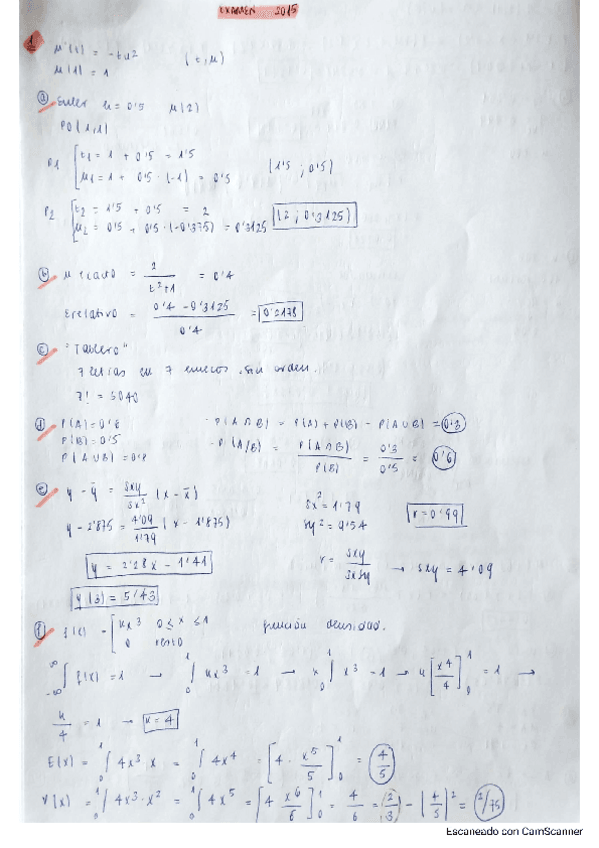 EXAMEN 2015
1 u'(t) = -tu² (t,u)
u(1) = 1
a) Euler h = 0'5 u(2)
P0 (1,1)
P1 [t1 = 1 + 0'5 = 1'5
u1 = 1 + 0'5 · (-1) = 0'5 (1'5 ; 0'5)
P2 [t2 = 1'5 + 0'5 = 2
u2 = 0'5 + 0'5 · (-0'375) = 0'3125 (2 ; 0'3125)
b) u exacto = 2/(t²+1) = 0'4
Erelativo = (0'4 - 0'3125)/0'4 = 0'2178
c) "Tablero"
7 letras en 7 huecos. Sin orden.
7! = 5040
d) P(A) = 0'6 - P(A∩B) = P(A) + P(B) - P(A∪B) = 0'3
P(B) = 0'5 - P(A/B) = P(A∩B)/P(B) = 0'3/0'5 = 0'6
P(A∪B) = 0'8
e) y - ȳ = Sxy/Sx² (x - x̄) Sx² = 1'79
y - 2'875 = 4'09/1'79 (x - 1'875) Sy² = 9'54 r = 0'99
y = 2'28x - 1'41 r = Sxy/SxSy → Sxy = 4'09
y(3) = 5'43
f) f(x) - [kx³ 0 ≤ x ≤ 1 función densidad.
0 resto
∫_{-∞}^{∞} f(x) = 1 → ∫_0^1 kx³ = 1 → k ∫_0^1 x³ - 1 → k [x⁴/4]_0^1 = 1 →
k/4 = 1 → k = 4
E(x) = ∫_0^1 4x³·x = ∫_0^1 4x⁴ = [4 · x⁵/5]_0^1 = 4/5
V(x) = ∫_0^1 4x³·x² = ∫_0^1 4x⁵ = [4 x⁶/6]_0^1 = 4/6 = (2/3) - (4/5)² = 2/75
Escaneado con CamScanner